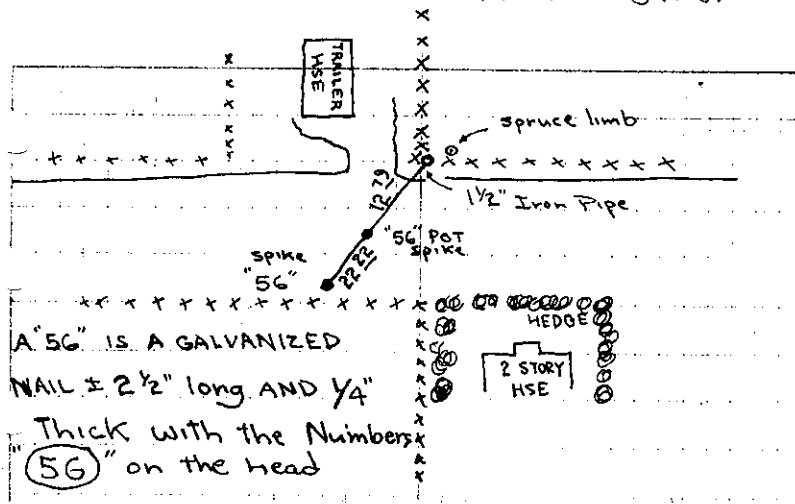 TRAILER
HSE
spruce limb
1½" Iron Pipe
12 79
"56" POT
spike
spike
"56"
22 22
HEDGE
2 STORY
HSE
A "56" IS A GALVANIZED
NAIL ± 2½" long AND ¼"
Thick with the Numbers
"56" on the head